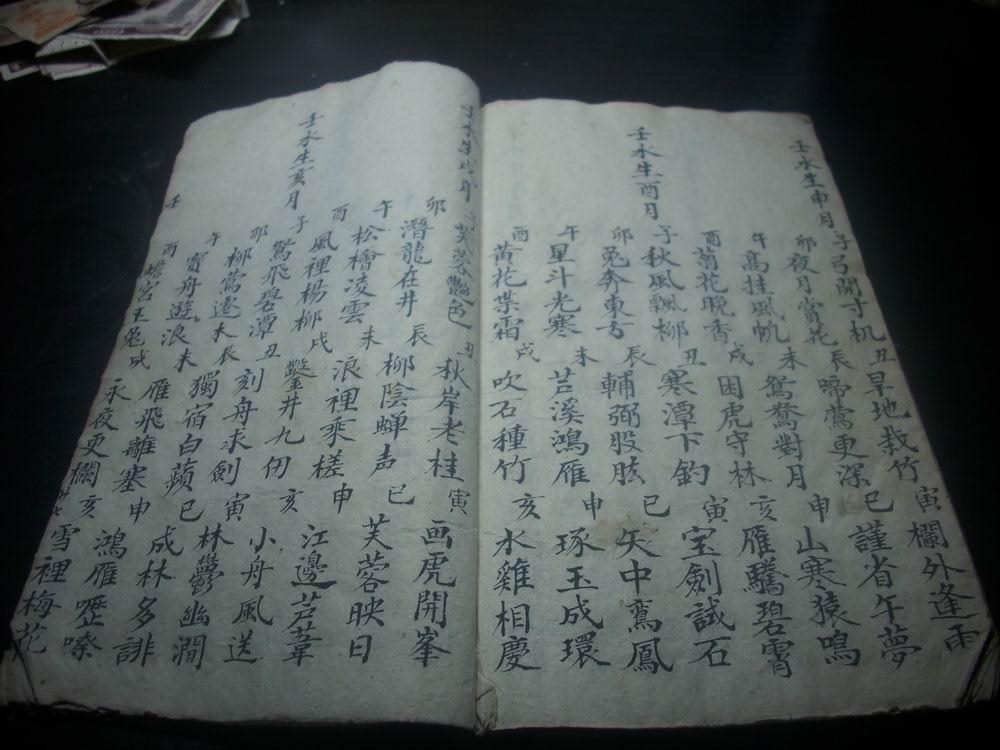 壬水生申月 子弓開寸机 丑旱地栽竹 寅欄外逢雨
卯夜月賞花 辰啼鶯更深 巳謹省午夢
午高挂風帆 未鴛鴦對月 申山寒猿鳴
酉菊花晚香 戌困虎守林 亥雁騰碧霄
壬水生酉月 子秋風飄柳 丑寒潭下釣 寅宝劍試石
卯兔奔東方 辰輔弼股肱 巳矢中鸞鳳
午星斗光寒 未芦溪鴻雁 申琢玉成環
酉黃花葉霜 戌吹石種竹 亥水雞相慶
壬水生戌月 子芙蓉艷色 丑秋岸老桂 寅画虎開峯
卯潛龍在井 辰柳陰蝉声 巳芙蓉映日
午松檜凌雲 未浪裡乘槎 申江邊芦葦
酉風裡楊柳 戌鑿井九仞 亥小舟風送
壬水生亥月 子鴛飛碧潭 丑刻舟求劍 寅林鬱幽澗
卯柳鶯遷木 辰獨宿白蘋 巳成林多誹
午寶舟遊浪 未雁飛離塞 申鴻雁嚦嗦
酉蟾宮玉兔 戌永夜更欄 亥雪裡梅花
壬